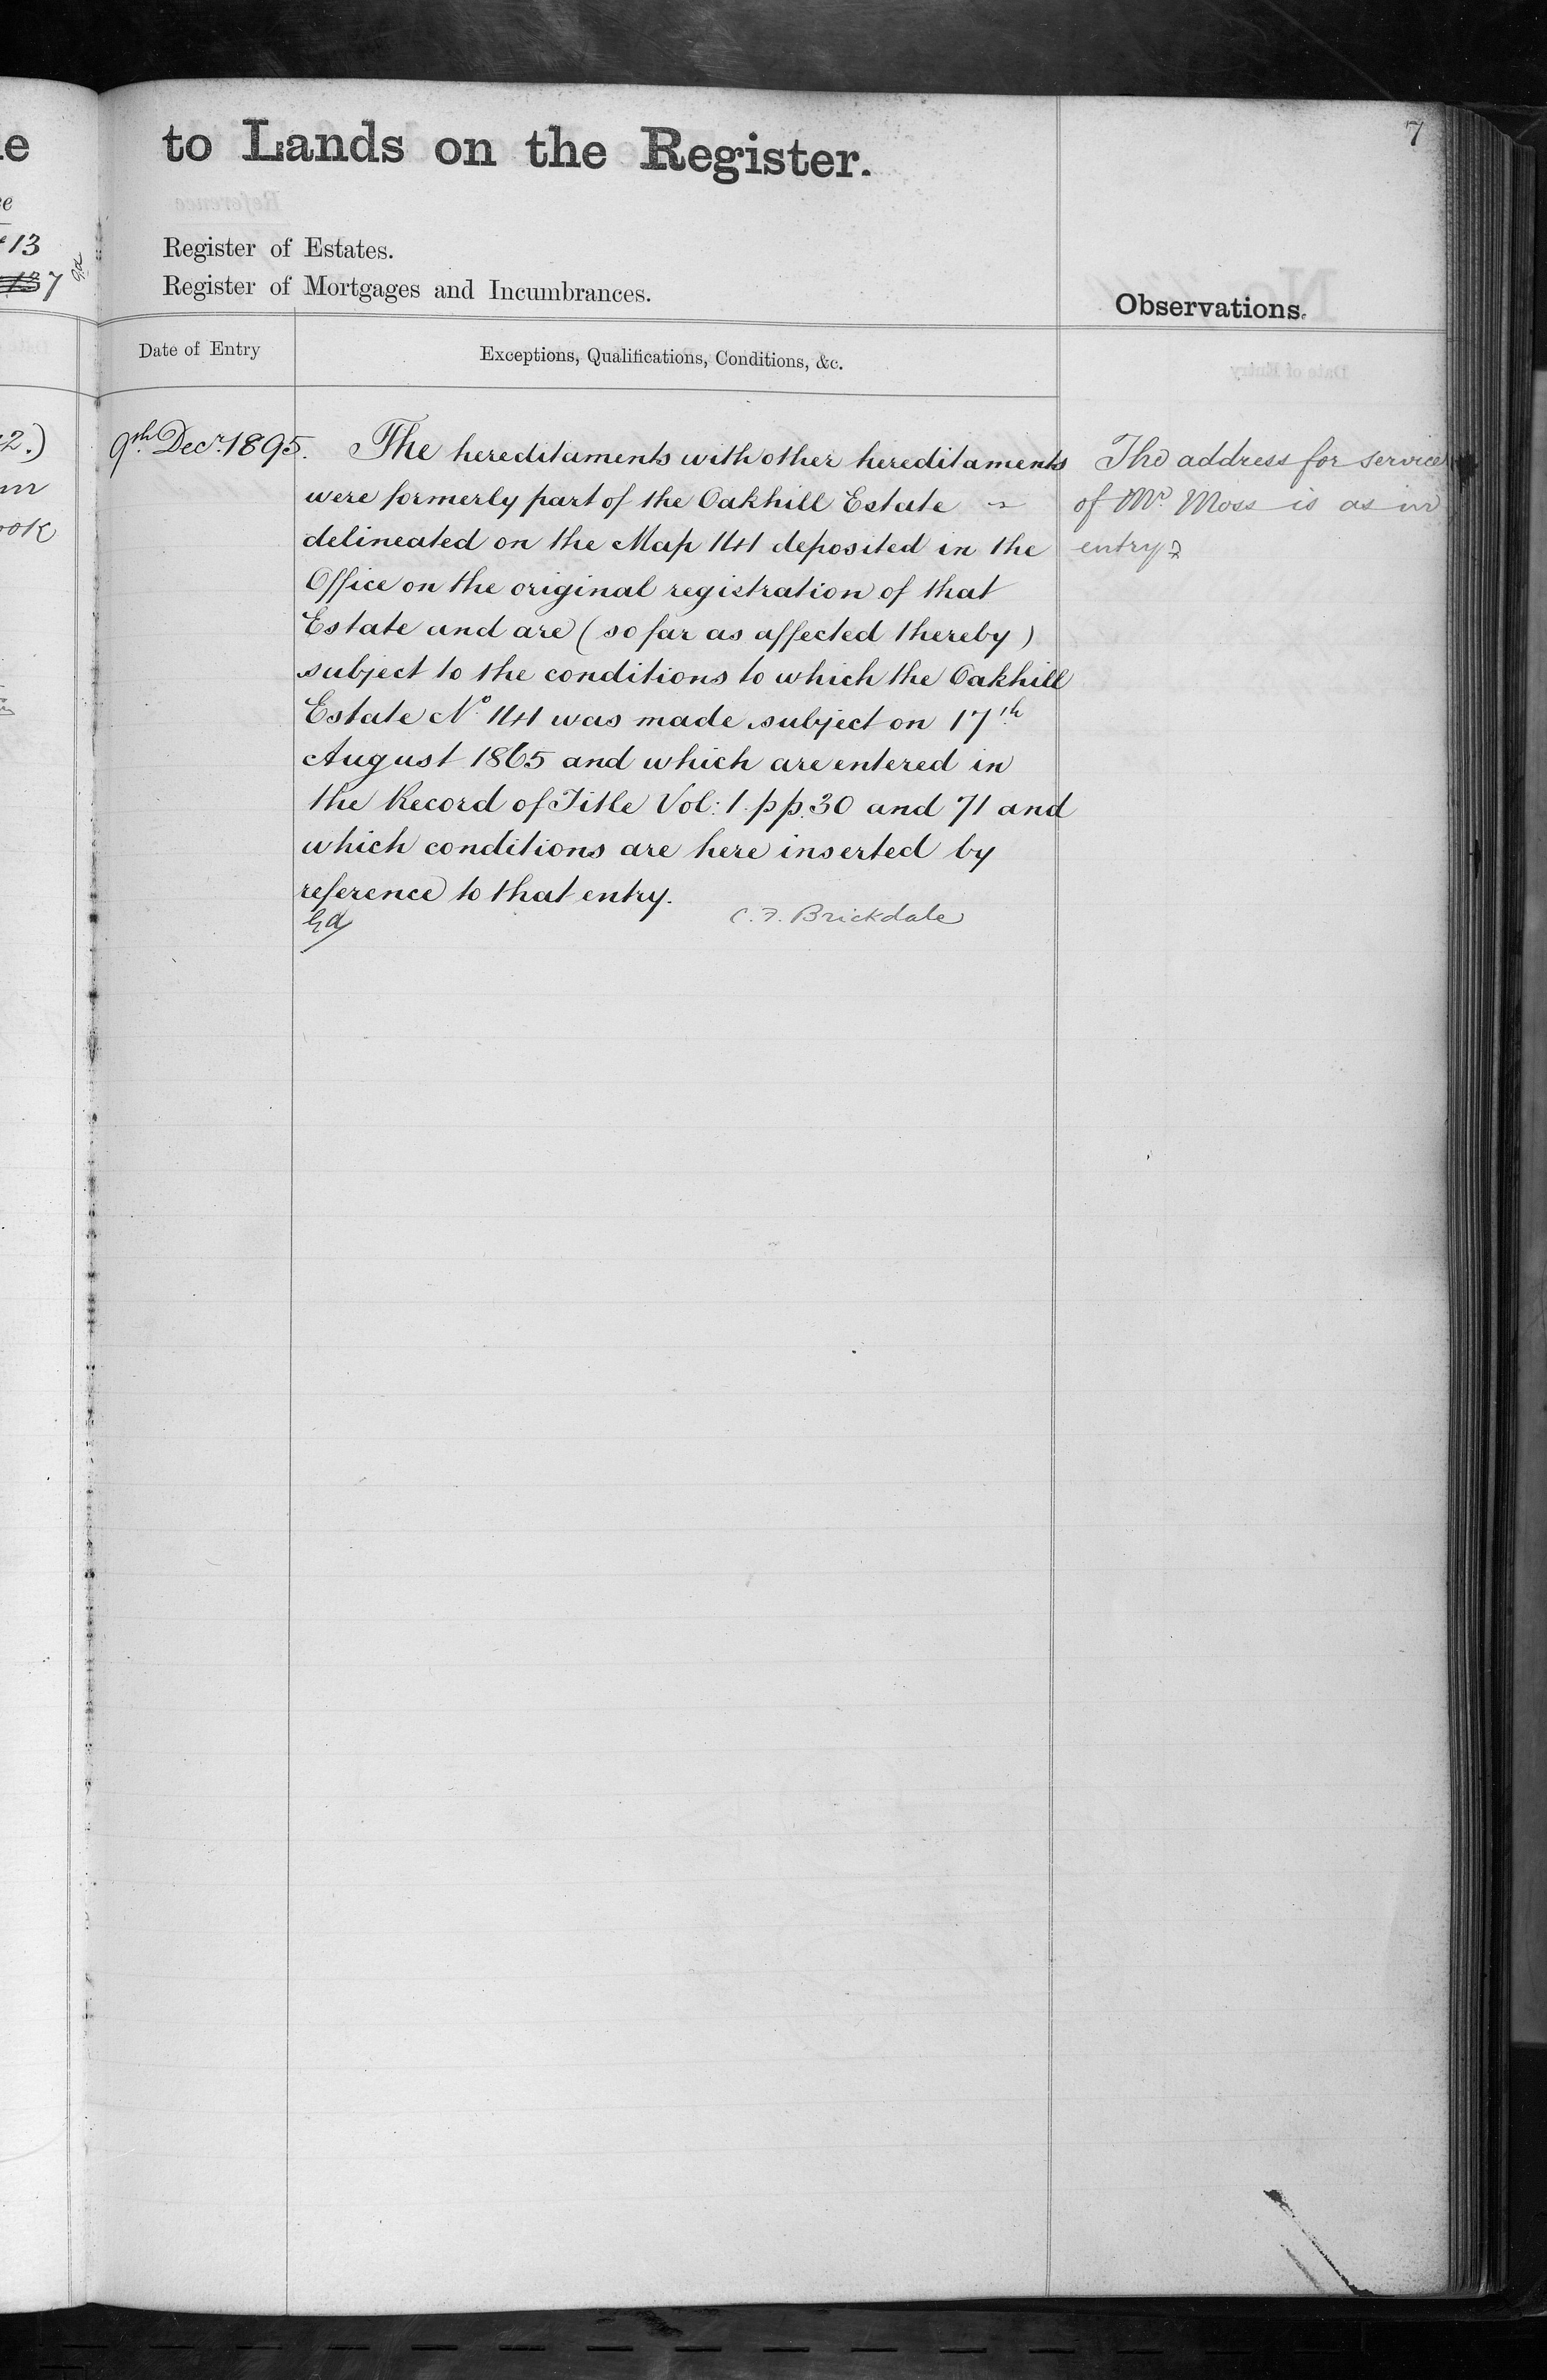 7
to Lands on the Register.
Register of Estates.
Register of Mortgages and Incumbrances.
Observations.
Date of Entry
Exceptions, Qualifications, Conditions, &c.
9th Decr. 1895.
The hereditaments with other hereditaments
were formerly part of the Oakhill Estate
delineated on the Map 141 deposited in the
Office on the original registration of that
Estate and are (so far as affected thereby)
subject to the conditions to which the Oakhill
Estate No. 141 was made subject on 17th
August 1865 and which are entered in
the Record of Title Vol: 1. pp. 30 and 71 and
which conditions are here inserted by
reference to that entry.
C. F. Brickdale
The address for service
of Mr. Moss is as in
entry 2
13
7
2.)